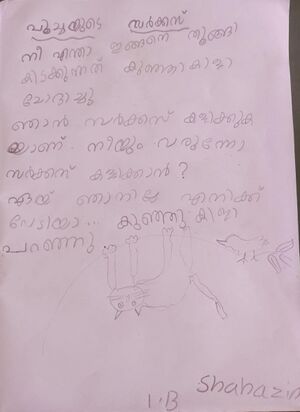 പൂച്ചയുടെ സർക്കസ്
നീ എന്താ ഇങ്ങനെ തൂങ്ങി
കിടക്കുന്നത് കുഞ്ഞിക്കിളി
ചോദിച്ചു
ഞാൻ സർക്കസ് കളിക്കുക
യാണ്. നീയും വരുന്നോ
സർക്കസ് കളിക്കാൻ?
ഏയ് ഞാനില്ല എനിക്ക്
പേടിയാ... കുഞ്ഞു കിളി
പറഞ്ഞു
Shahazin
1.B